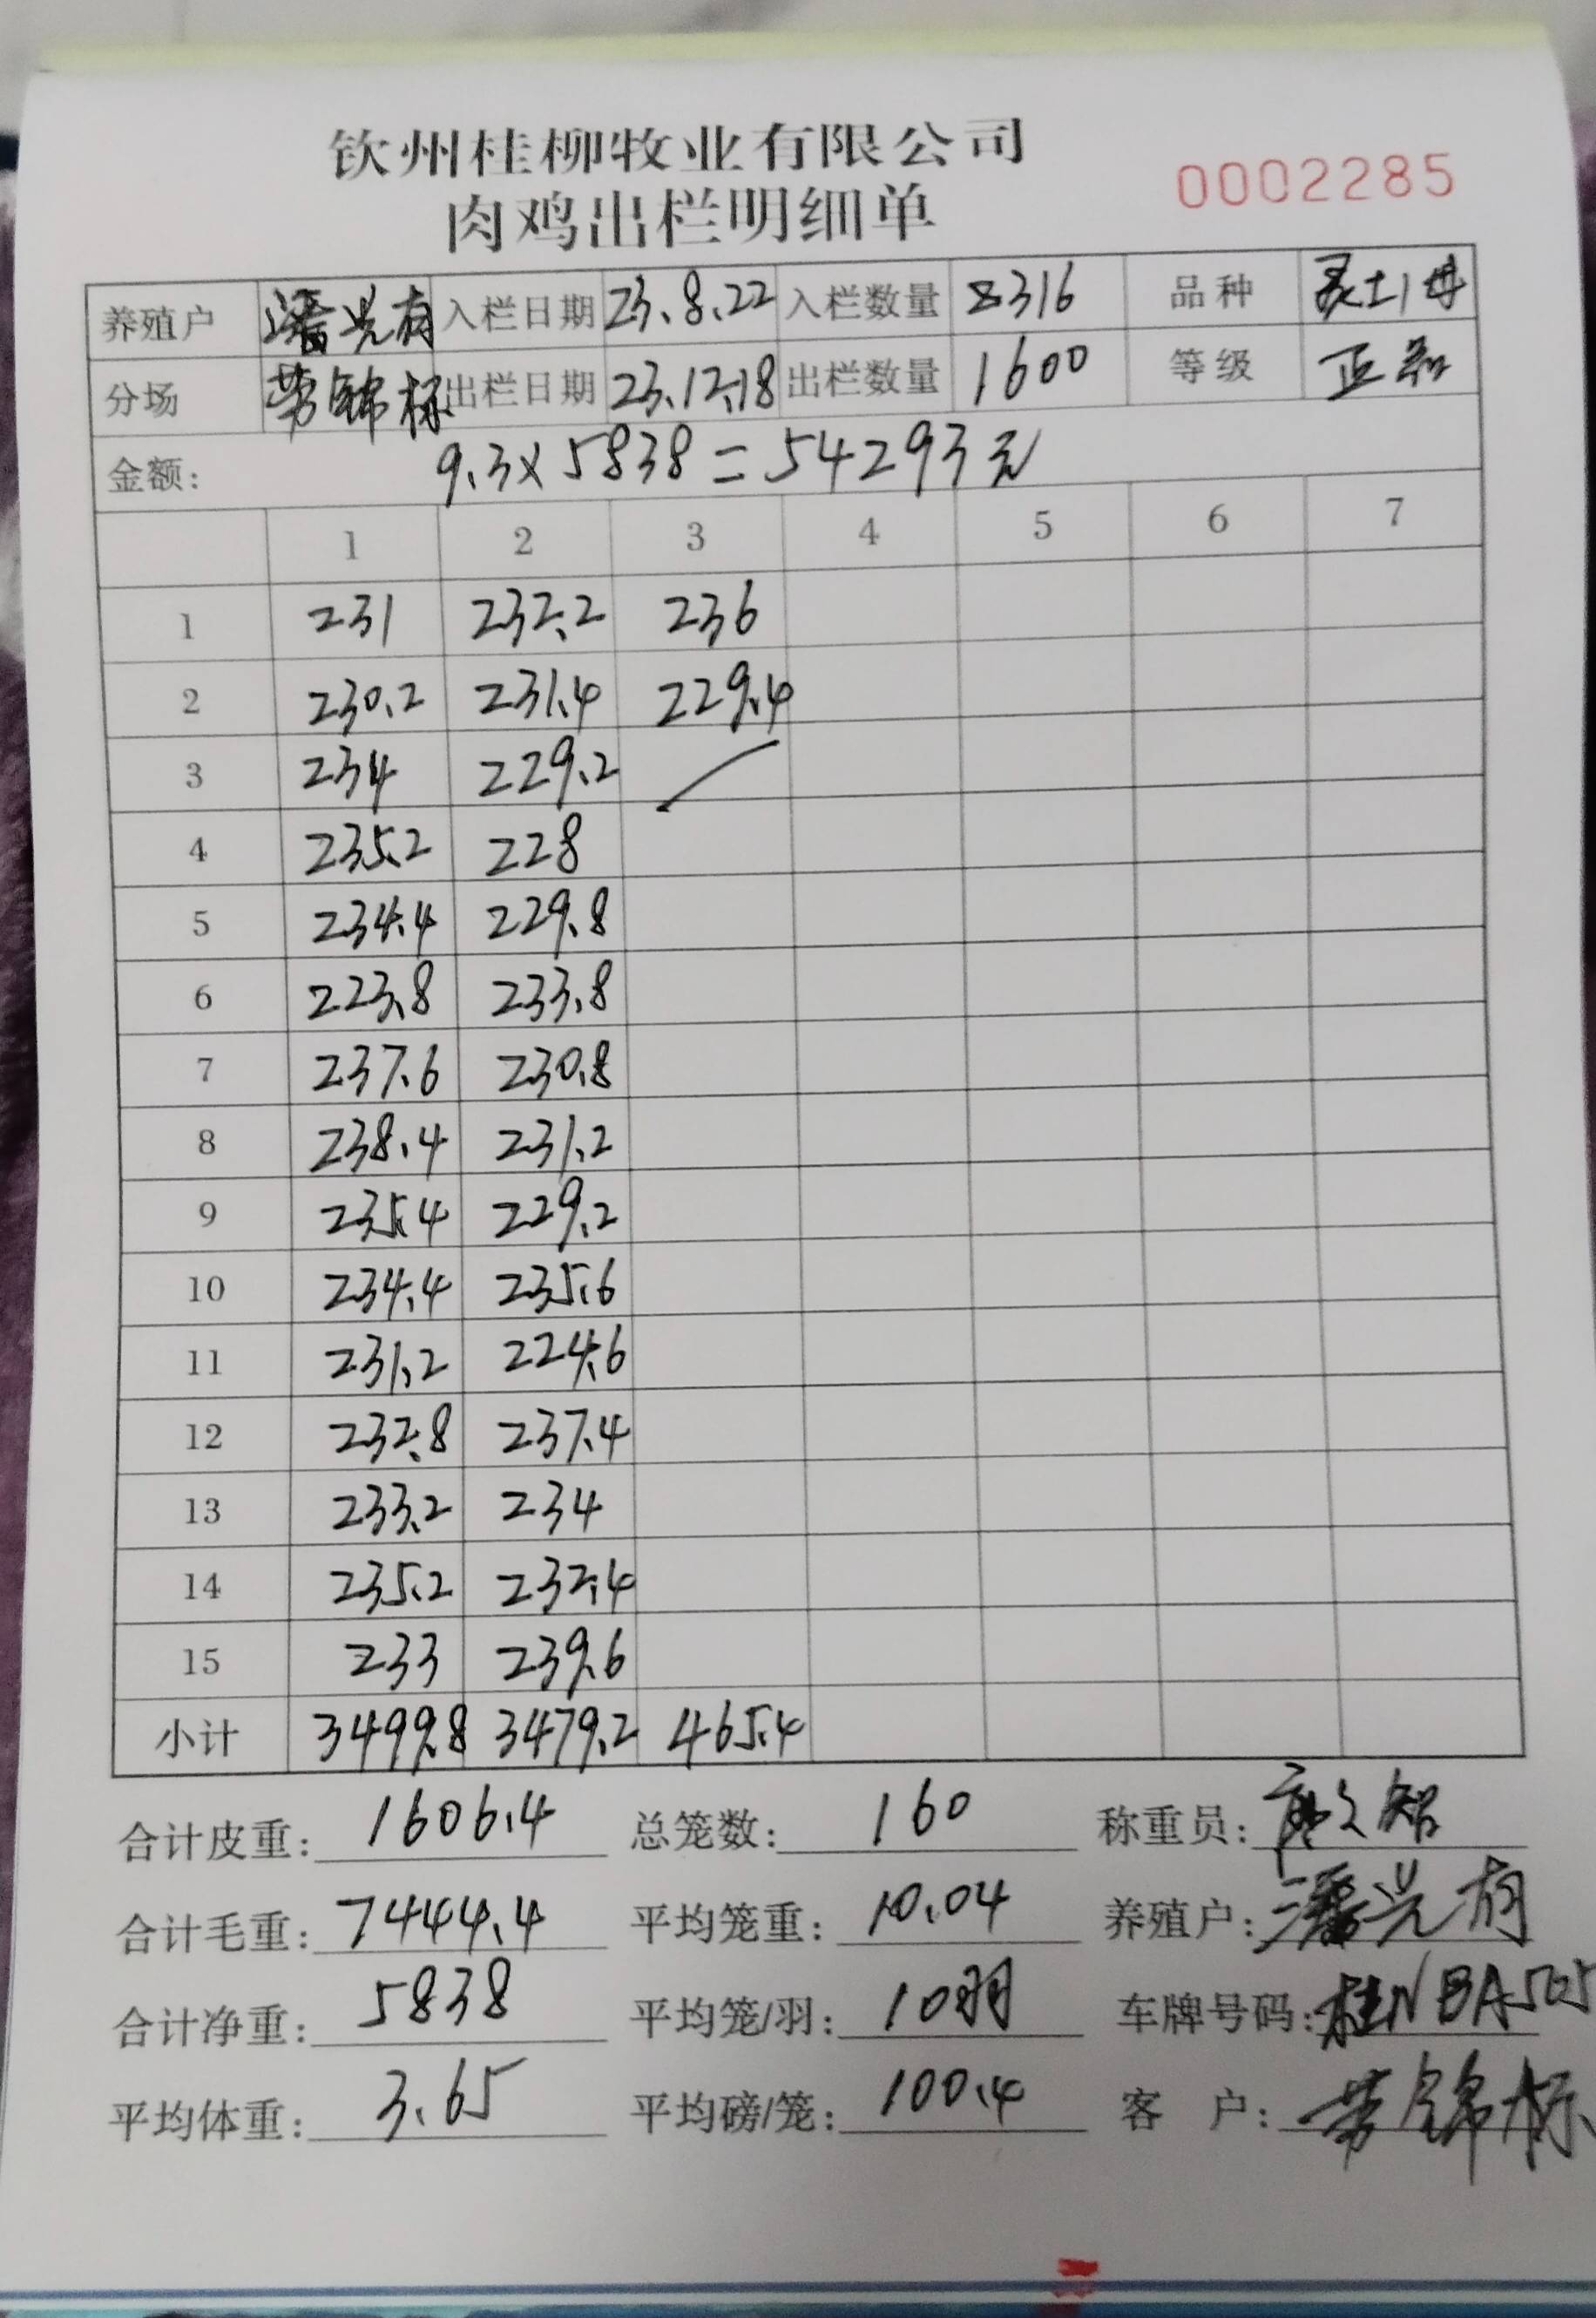 钦州桂柳牧业有限公司
肉鸡出栏明细单
0002285
养殖户 潘光有 入栏日期 23.8.22 入栏数量 8316 品种 灵土1母
分场 劳锦标 出栏日期 23.12.18 出栏数量 1600 等级 正品
金额: 9.3×5838=54293元
1 2 3 4 5 6 7
1 231 232.2 236
2 230.2 231.4 229.4
3 234 229.2
4 235.2 228
5 234.4 229.8
6 223.8 233.8
7 237.6 230.8
8 238.4 231.2
9 235.4 229.2
10 234.4 235.6
11 231.2 224.6
12 232.8 237.4
13 233.2 234
14 235.2 232.4
15 233 239.6
小计 3499.8 3479.2 465.4
合计皮重: 1606.4 总笼数: 160 称重员:
合计毛重: 7444.4 平均笼重: 10.04 养殖户: 潘光有
合计净重: 5838 平均笼/羽: 10羽 车牌号码: 桂NBA505
平均体重: 3.65 平均磅/笼: 100.4 客 户: 劳锦标